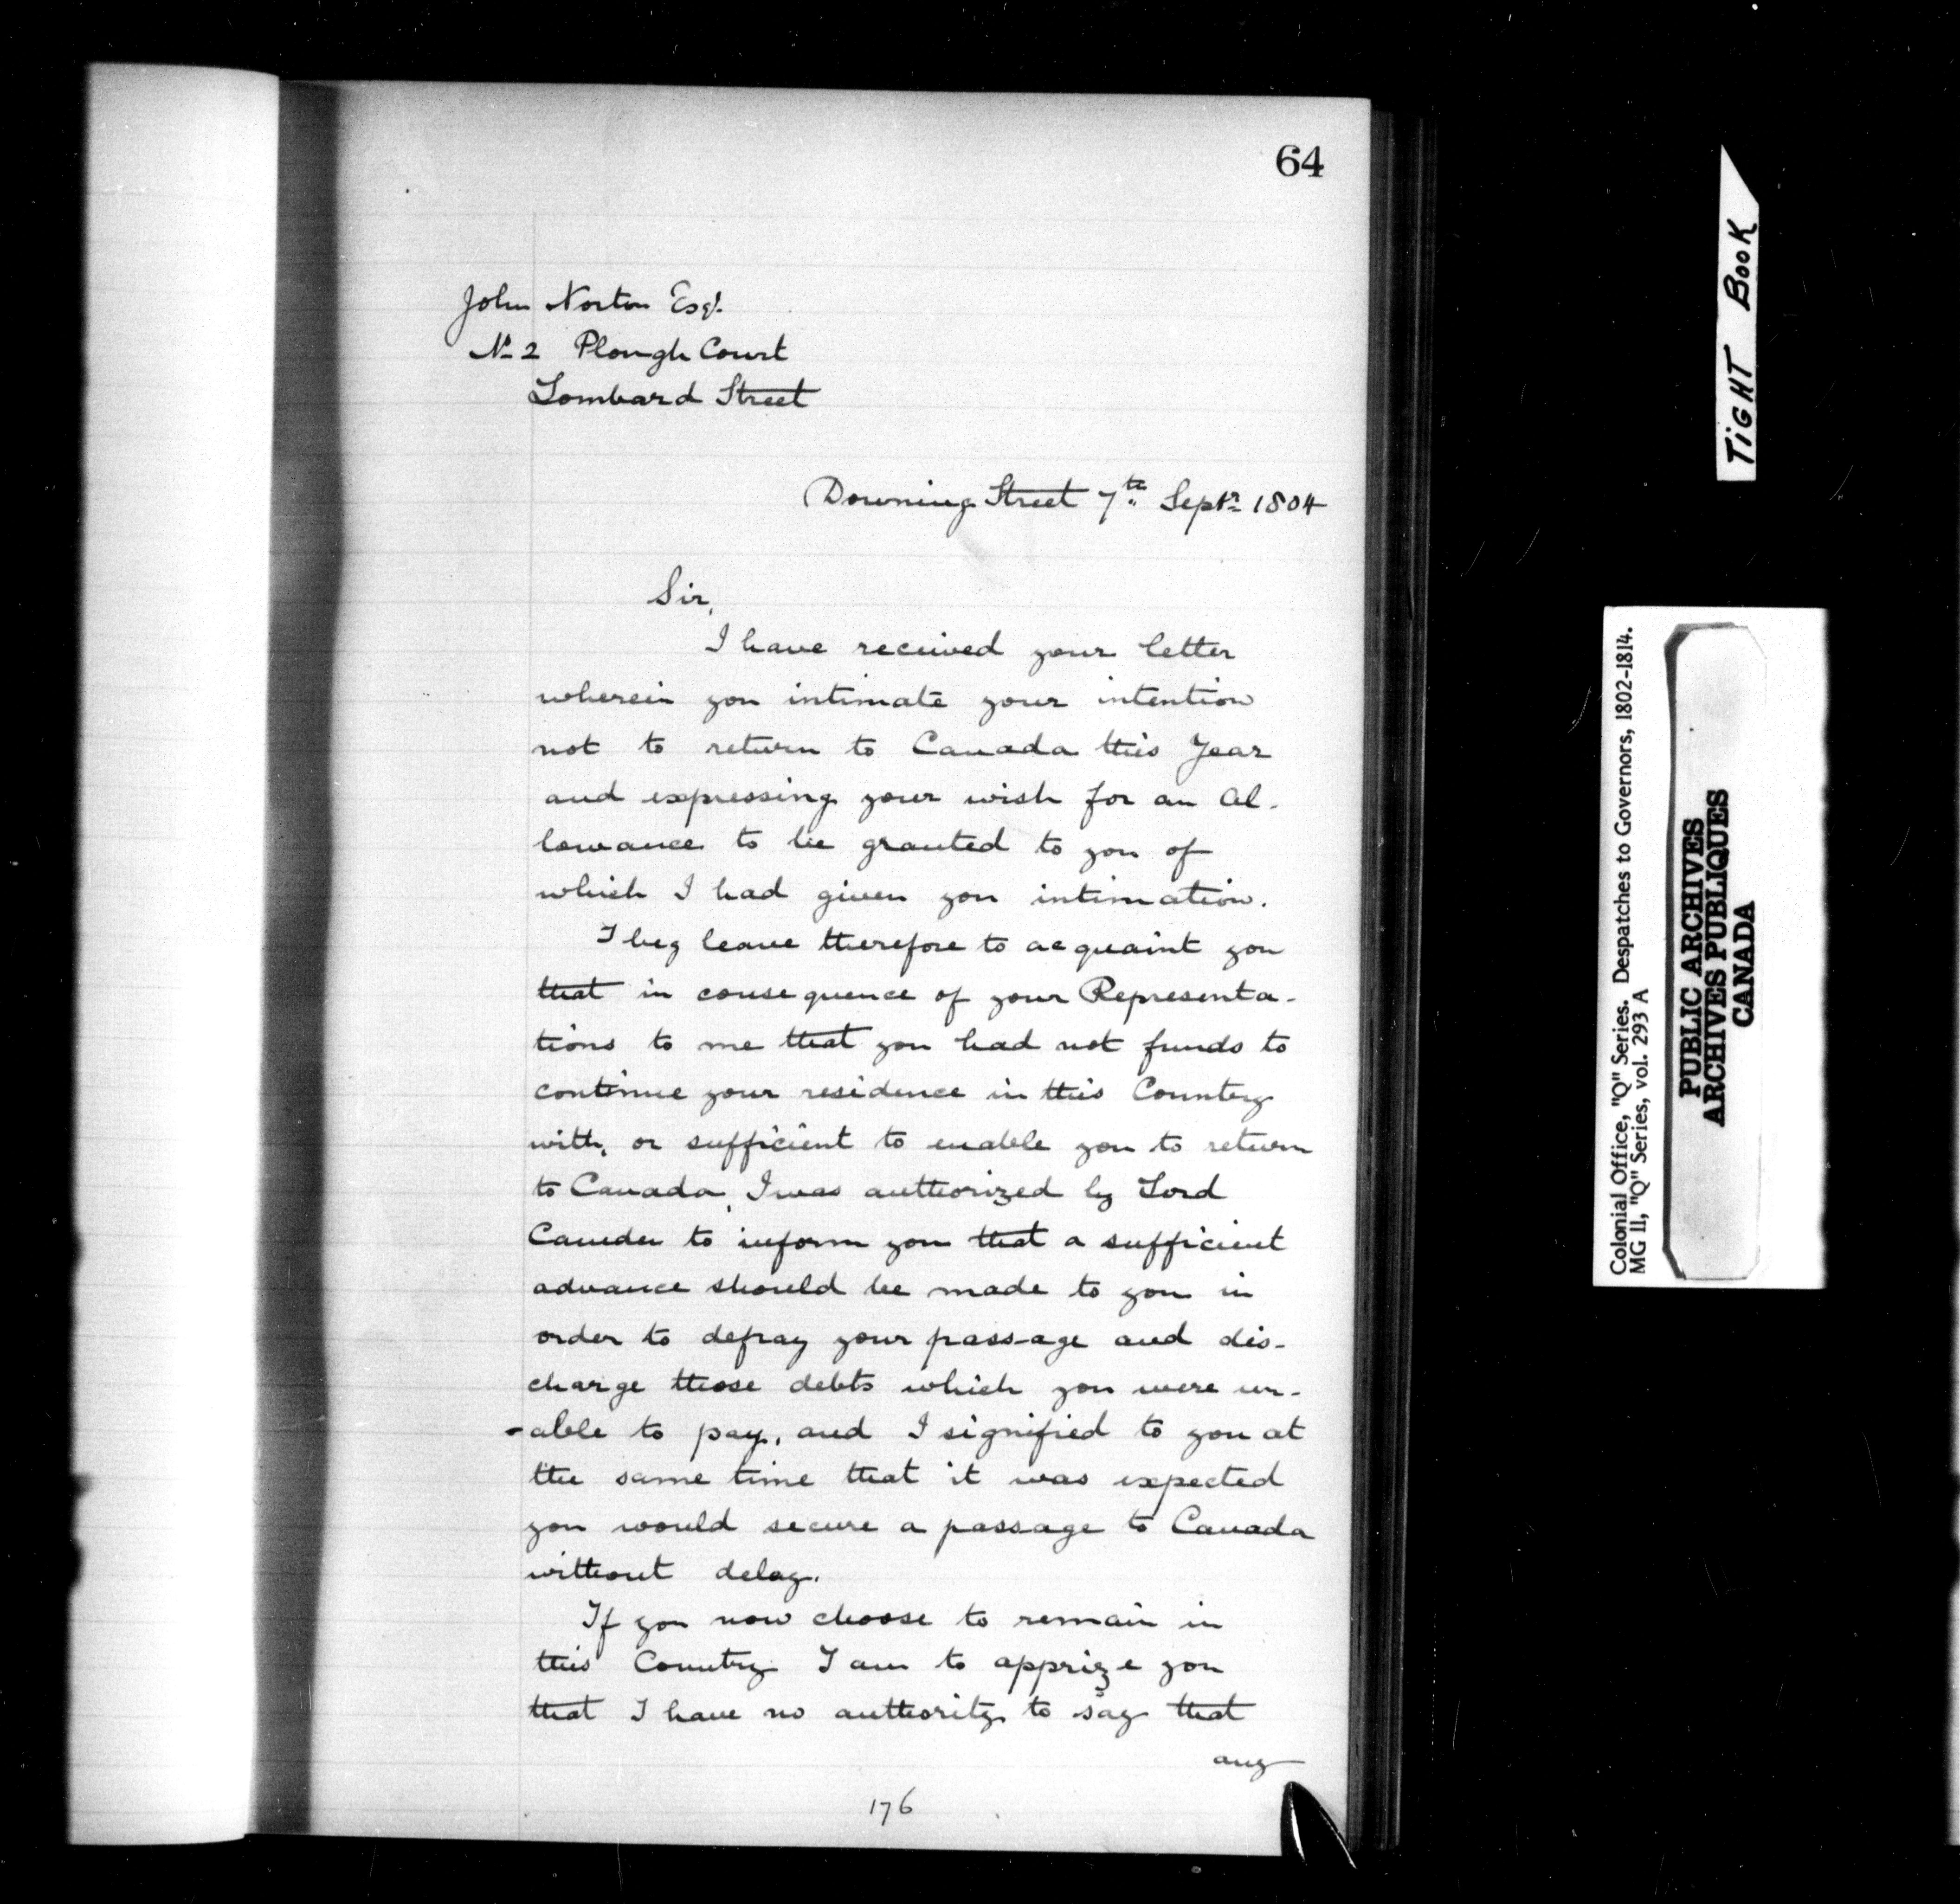 64
John Norton Esqr.
No 2 Plough Court
Lombard Street
Downing Street 7th Septr 1804
Sir,
I have received your letter
wherein you intimate your intention
not to return to Canada this Year
and expressing your wish for an Al-
lowance to be granted to you of
which I had given you intimation.
I beg leave therefore to acquaint you
that in consequence of your Representa-
tions to me that you had not funds to
continue your residence in this Country
with, or sufficient to enable you to return
to Canada, I was authorized by Lord
Camden to inform you that a sufficient
advance should be made to you in
order to defray your passage and dis-
charge those debts which you were un-
-able to pay, and I signified to you at
the same time that it was expected
you would secure a passage to Canada
without delay.
If you now choose to remain in
this Country I am to apprize you
that I have no authority to say that
any
176
TiGHT BooK
Colonial Office, "Q" Series. Despatches to Governors, 1802-1814.
MG 11, "Q" Series, vol. 293 A
PUBLIC ARCHIVES
ARCHIVES PUBLIQUES
CANADA